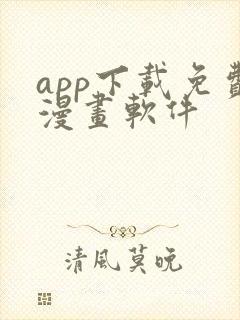 app下載免費
漫畫軟件
清風莫晚